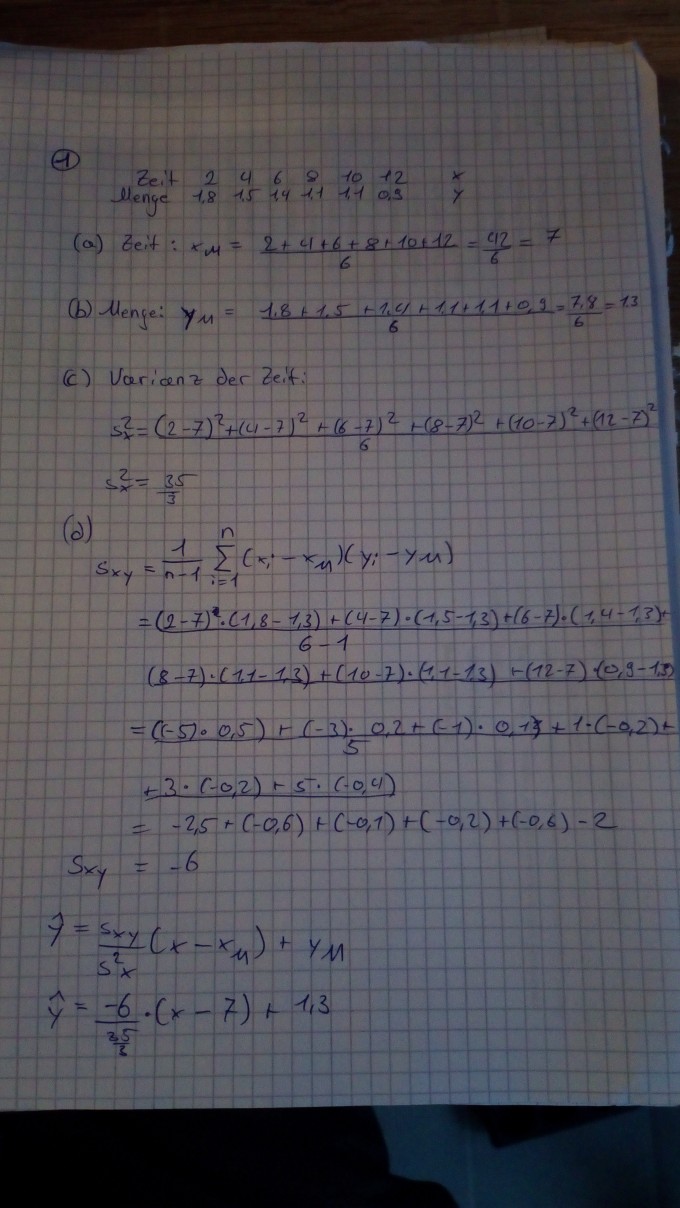 1
Zeit 2 4 6 8 10 12 x
Menge 1,8 1,5 1,4 1,1 1,1 0,9 y
(a) Zeit: x_M = (2+4+6+8+10+12)/6 = 42/6 = 7
(b) Menge: y_M = (1,8+1,5+1,4+1,1+1,1+0,9)/6 = 7,8/6 = 1,3
(c) Varianz der Zeit:
s²_x = ((2-7)²+(4-7)²+(6-7)²+(8-7)²+(10-7)²+(12-7)²)/6
s²_x = 35/3
(d)
s_xy = 1/(n-1) Σ_{i=1}^{n} (x_i - x_M)(y_i - y_M)
= (2-7)·(1,8-1,3)+(4-7)·(1,5-1,3)+(6-7)·(1,4-1,3)+
6-1
(8-7)·(1,1-1,3)+(10-7)·(1,1-1,3)+(12-7)·(0,9-1,3)
= ((-5)·0,5)+(-3)·0,2+(-1)·0,1+1·(-0,2)+
5
+3·(-0,2)+5·(-0,4)
= -2,5+(-0,6)+(-0,1)+(-0,2)+(-0,6)-2
s_xy = -6
ŷ = s_xy/s²_x (x - x_M) + y_M
ŷ = -6/(35/3) · (x - 7) + 1,3